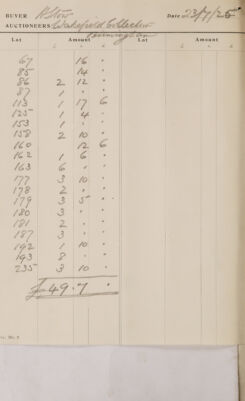 BUYER R Stow Date 23/7/25
AUCTIONEERS Wakefield Collection
Kennington
Lot Amount Lot Amount
£ s d £ s d
67 16 "
85 14 "
86 2 12 "
87 1 " "
113 1 17 6
125 1 4 "
153 1 " "
158 2 10 "
160 12 6
162 1 6 "
163 6 " "
177 3 10 "
178 2 " "
179 3 5 "
180 3 " "
181 2 " "
187 3 " "
192 1 10 "
193 8 " "
235 3 10 "
£49.7 "